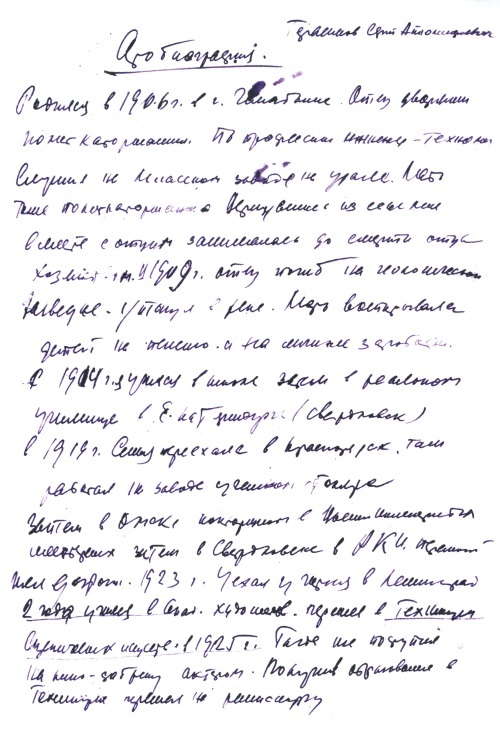 Герасимов Серг Аполлинариевич
Автобиография.
Родился в 1906 г. в г. Отец дворянин
По профессии инженер-технолог
Служил на Миасском заводе на урале. Мать
тоже из ссылки
вместе с отцом занималась до смерти отца
хозяйст. 1909 г. отец погиб на геологической
разведке. утонул в реке. Мать воспитывала
детей на пенсию и на личные заработки.
С 1914 г. учился в школе затем в реальном
училище в Екатеринбурге (Свердловск)
в 1919 г. Семья переехала в Красноярск, там
работал на заводе учеником
Затем в Омске конторщиком в
затем в Свердловске в Р.К.И.
1923 г. Уехал учиться в Ленинград
2 года учился в худож. перешел в Техникум
Сценических искусств в 1925 г. Тогда же поступил
на кино-фабрику актером. Получив образование в
Техникуме перешел на режиссуру